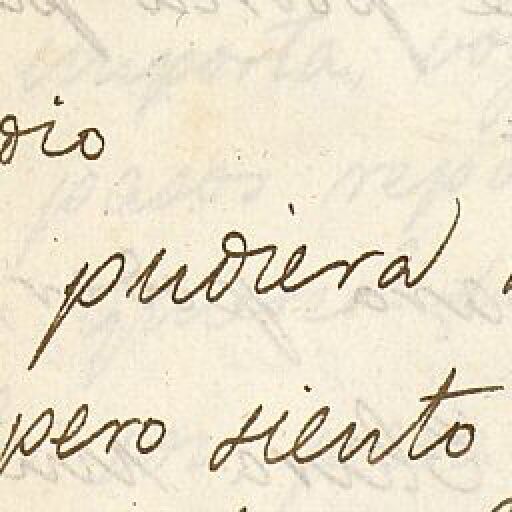 dio
pudiera
pero siento